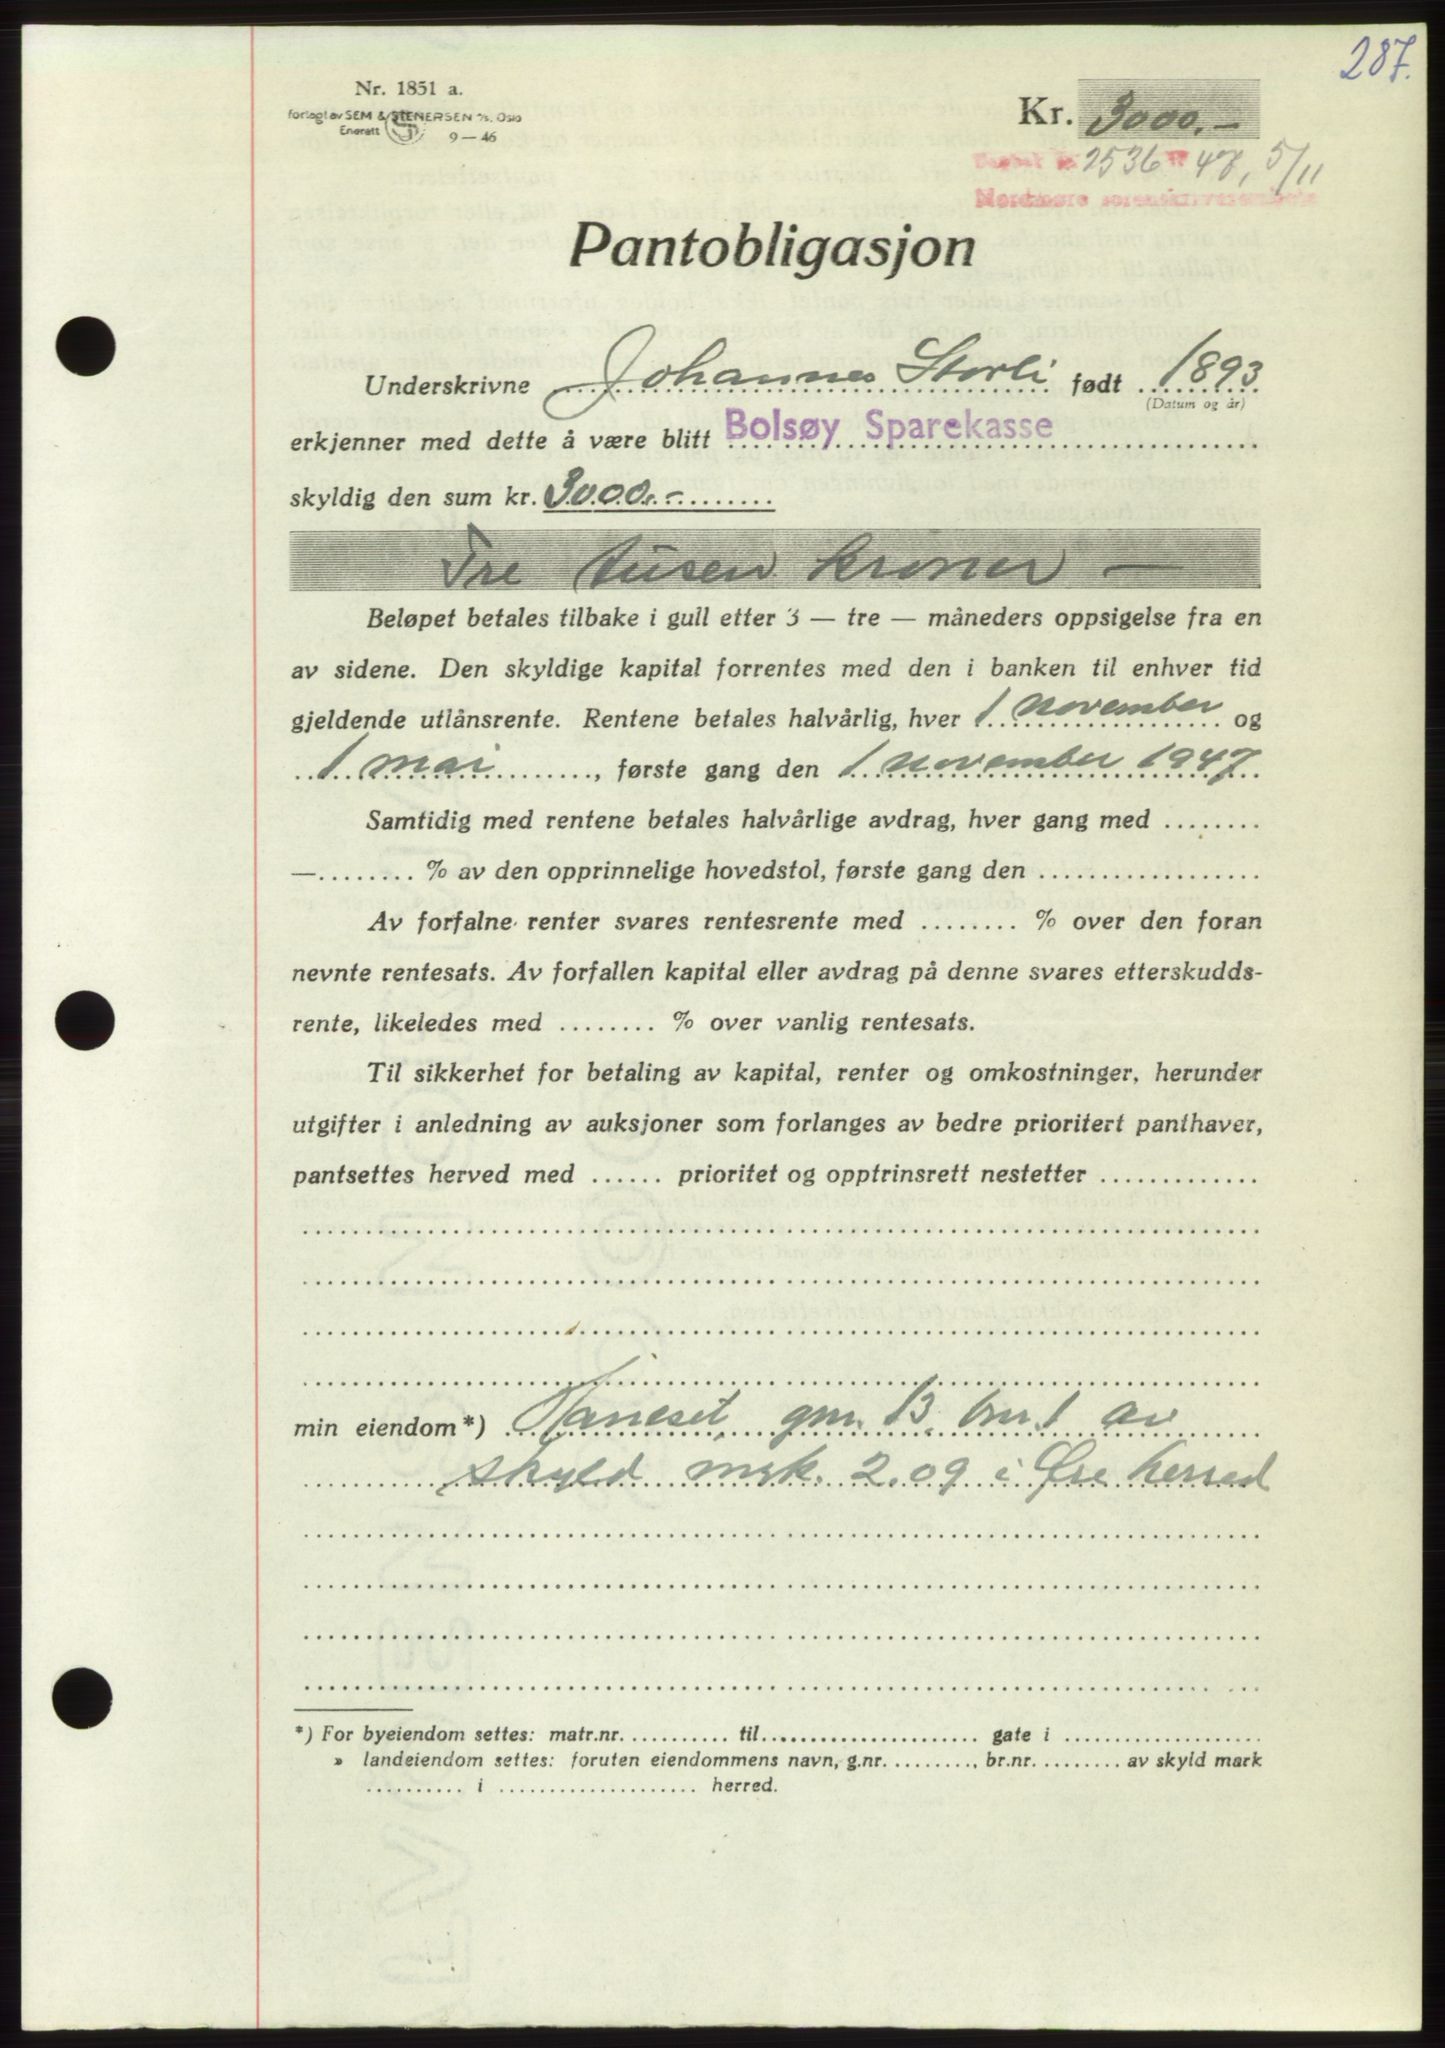 287.
Nr. 1851 a.
Forlagt av SEM & STENERSEN A/S. Oslo
Enerett 9 — 46
Kr. 3000.-
2536 47, 5/11
Nordmøre sorenskriverembede
Pantobligasjon
Underskrivne Johannes Storli født 1893
(Datum og år)
erkjenner med dette å være blitt Bolsøy Sparekasse
skyldig den sum kr. 3000.-
Tre tusen kroner —
Beløpet betales tilbake i gull etter 3 — tre — måneders oppsigelse fra en
av sidene. Den skyldige kapital forrentes med den i banken til enhver tid
gjeldende utlånsrente. Rentene betales halvårlig, hver 1 november og
1 mai, første gang den 1 november 1947
Samtidig med rentene betales halvårlige avdrag, hver gang med ........
—........ % av den opprinnelige hovedstol, første gang den ...................
Av forfalne renter svares rentesrente med ........ % over den foran
nevnte rentesats. Av forfallen kapital eller avdrag på denne svares etterskudds-
rente, likeledes med ........ % over vanlig rentesats.
Til sikkerhet for betaling av kapital, renter og omkostninger, herunder
utgifter i anledning av auksjoner som forlanges av bedre prioritert panthaver,
pantsettes herved med ...... prioritet og opptrinsrett nestetter .............
min eiendom*) gnr. 13, bnr. 1 av
skyld mrk. 2.09 i Øre herred
*) For byeiendom settes: matr.nr. ........... til...................... gate i ....................
» landeiendom settes: foruten eiendommens navn, g.nr. ........., br.nr. ......... av skyld mark
.......... i .................... herred.